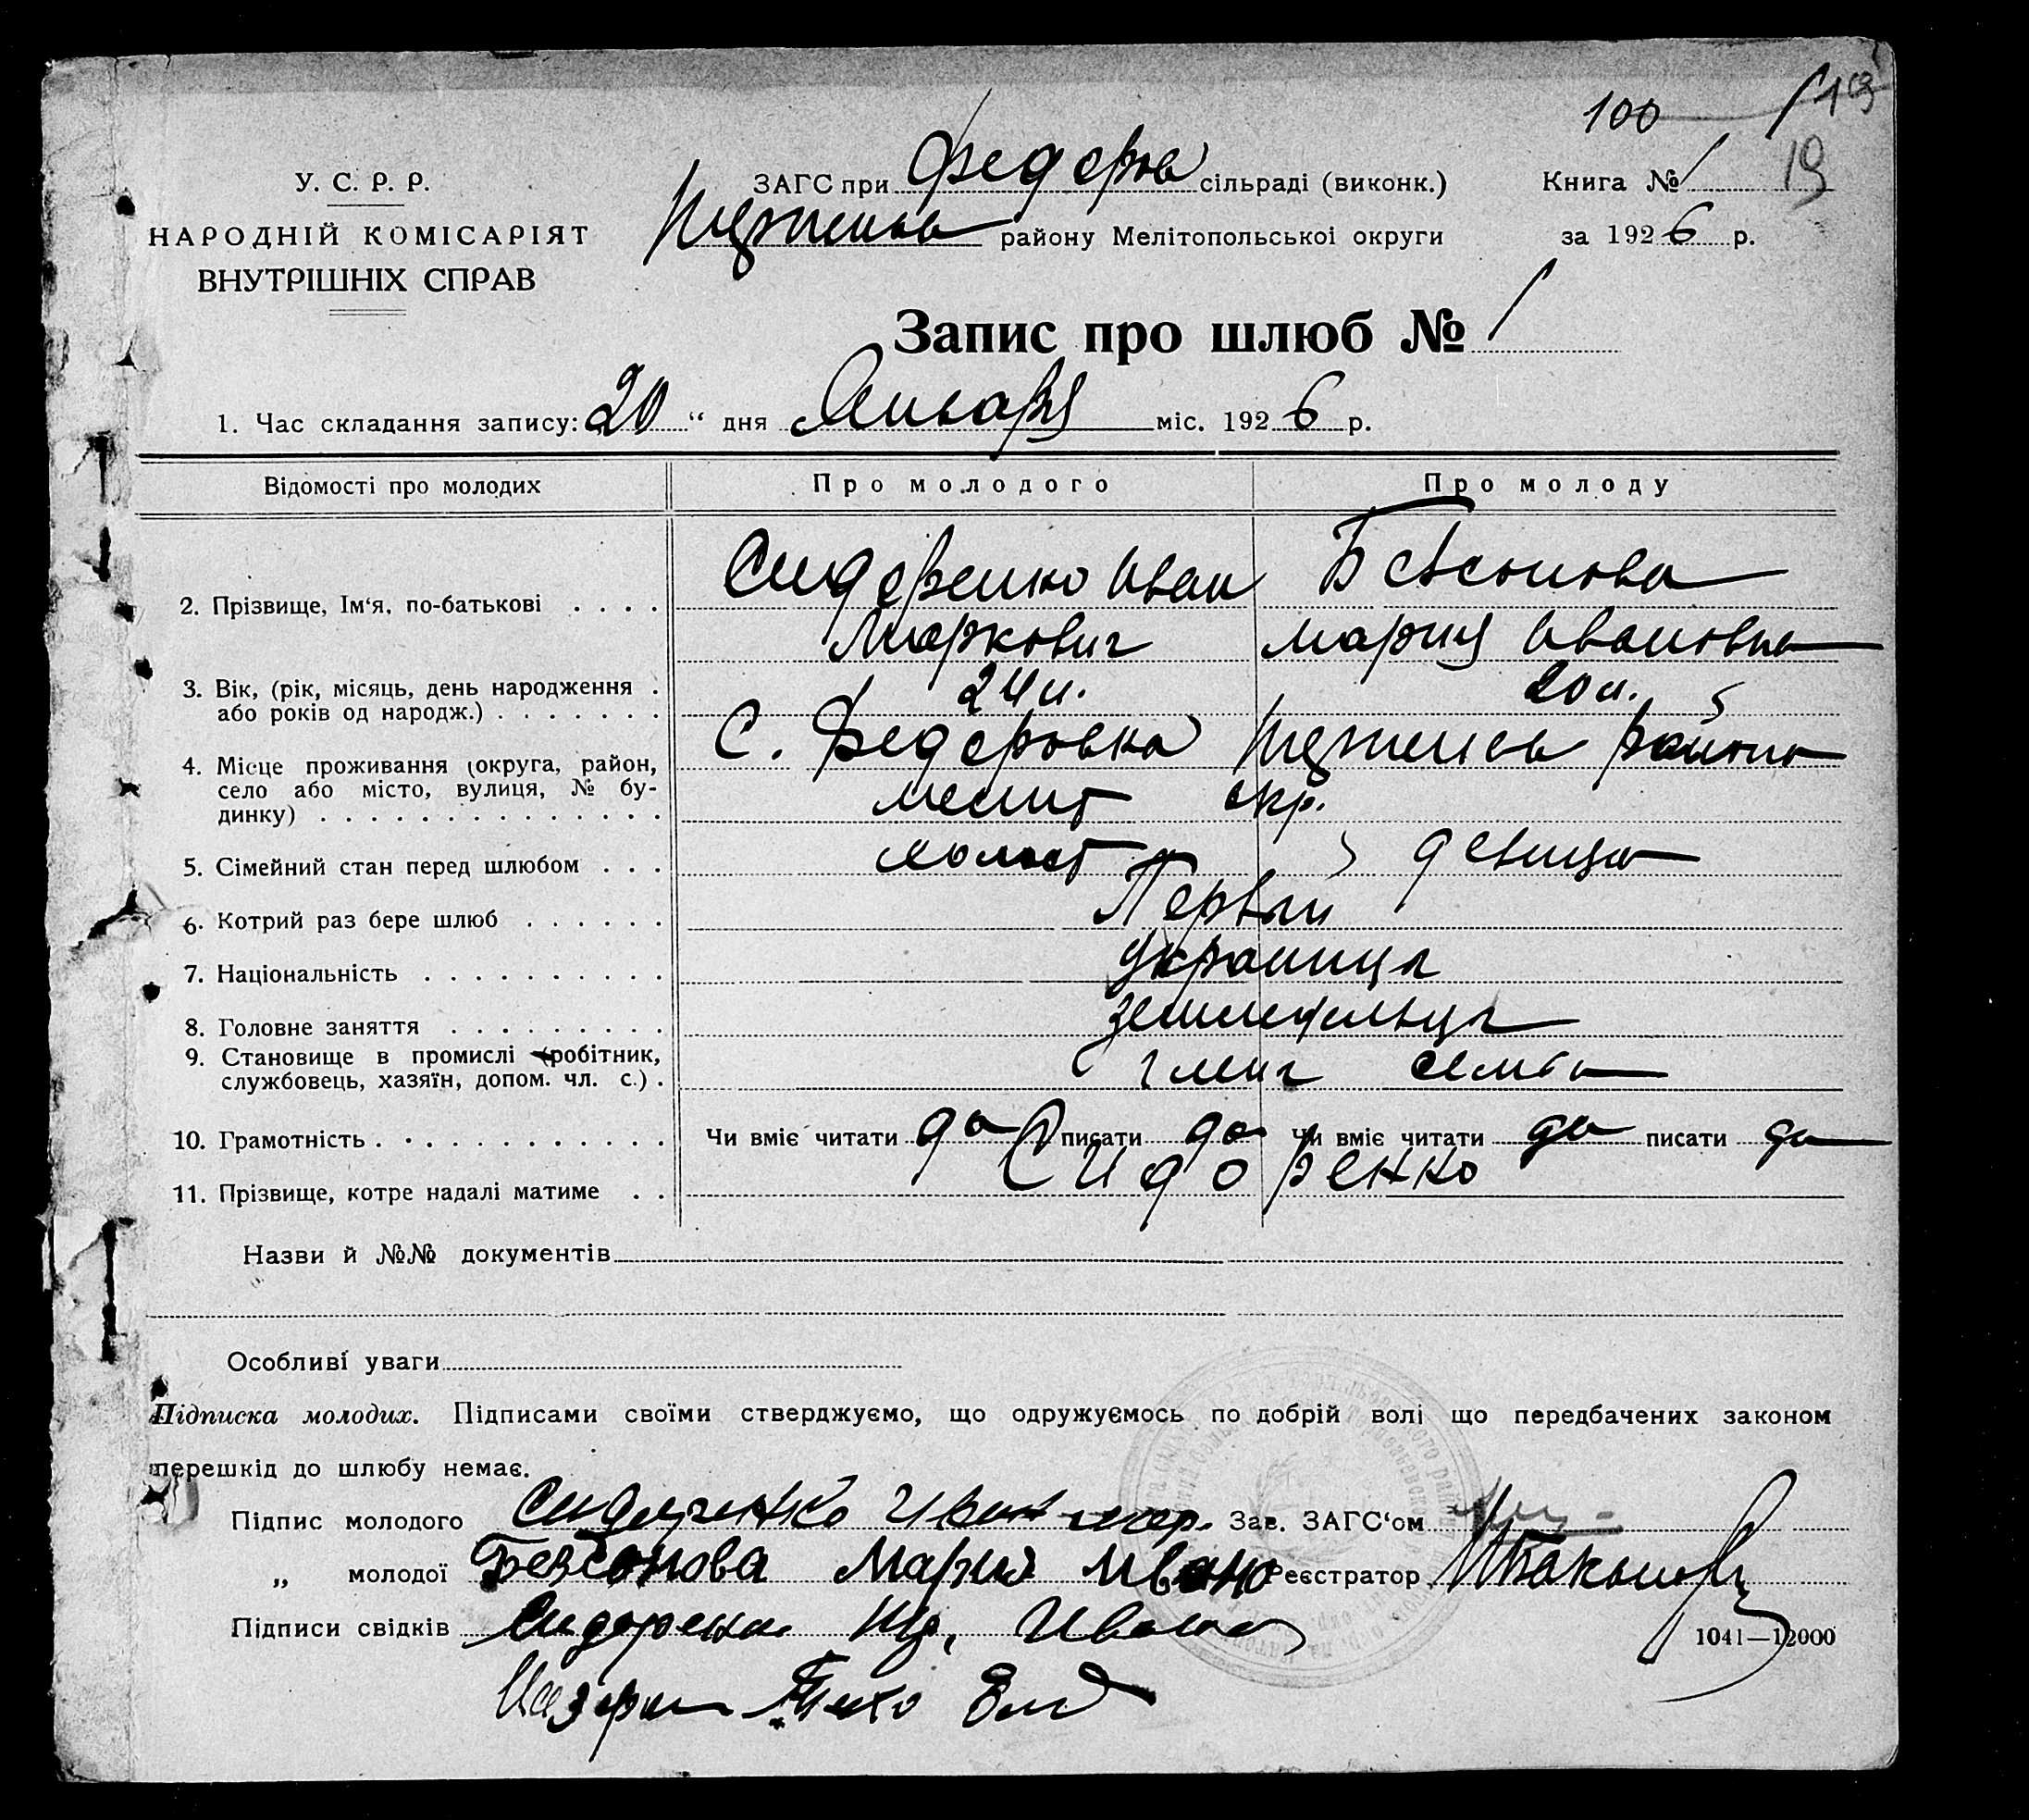 100 119
19
У. С. Р. Р.
НАРОДНІЙ КОМІСАРІЯТ
ВНУТРІШНІХ СПРАВ
ЗАГС при Федоров сільраді (виконк.)
района Мелітопольської округи
Книга № 1
за 1926 р.
Запис про шлюб № 1
1. Час складання запису: „20“ дня Января міс. 1926 р.
Відомості про молодих Про молодого Про молоду
2. Прізвище, Ім‘я, по-батькові . . . . Сидоренко Иван Безсонова
Маркович Мария Ивановна
3. Вік, (рік, місяць, день народження . 24 л. 20 л.
або років од народж.) . . . . . . .
4. Місце проживання (округа, район, С. Федоровка района
село або місто, вулиця, № бу- Мелит окр.
динку) . . . . . . . . . . . . . .
5. Сімейний стан перед шлюбом . . . холост девица
6. Котрий раз бере шлюб . . . . . . Первый
7. Національність . . . . . . . . . . Украинцы
8. Головне заняття . . . . . . . . . земледельцы
9. Становище в промислі (робітник, член семьи
службовець, хазяїн, допом. чл. с.) .
10. Грамотність . . . . . . . . . . . . Чи вміє читати да писати да Чи вміє читати да писати да
11. Прізвище, котре надалі матиме . . Сидоренко
Назви й №№ документів
Особливі уваги
Підписка молодих. Підписами своїми стверджуємо, що одружуємось по добрій волі що передбачених законом
перешкід до шлюбу немає.
Підпис молодого Сидоренко Иван мар. Зав. ЗАГС‘ом
„ молодої Безсонова Мария Ивано Реєстратор
Підписи свідків Сидоренко
1041—12000